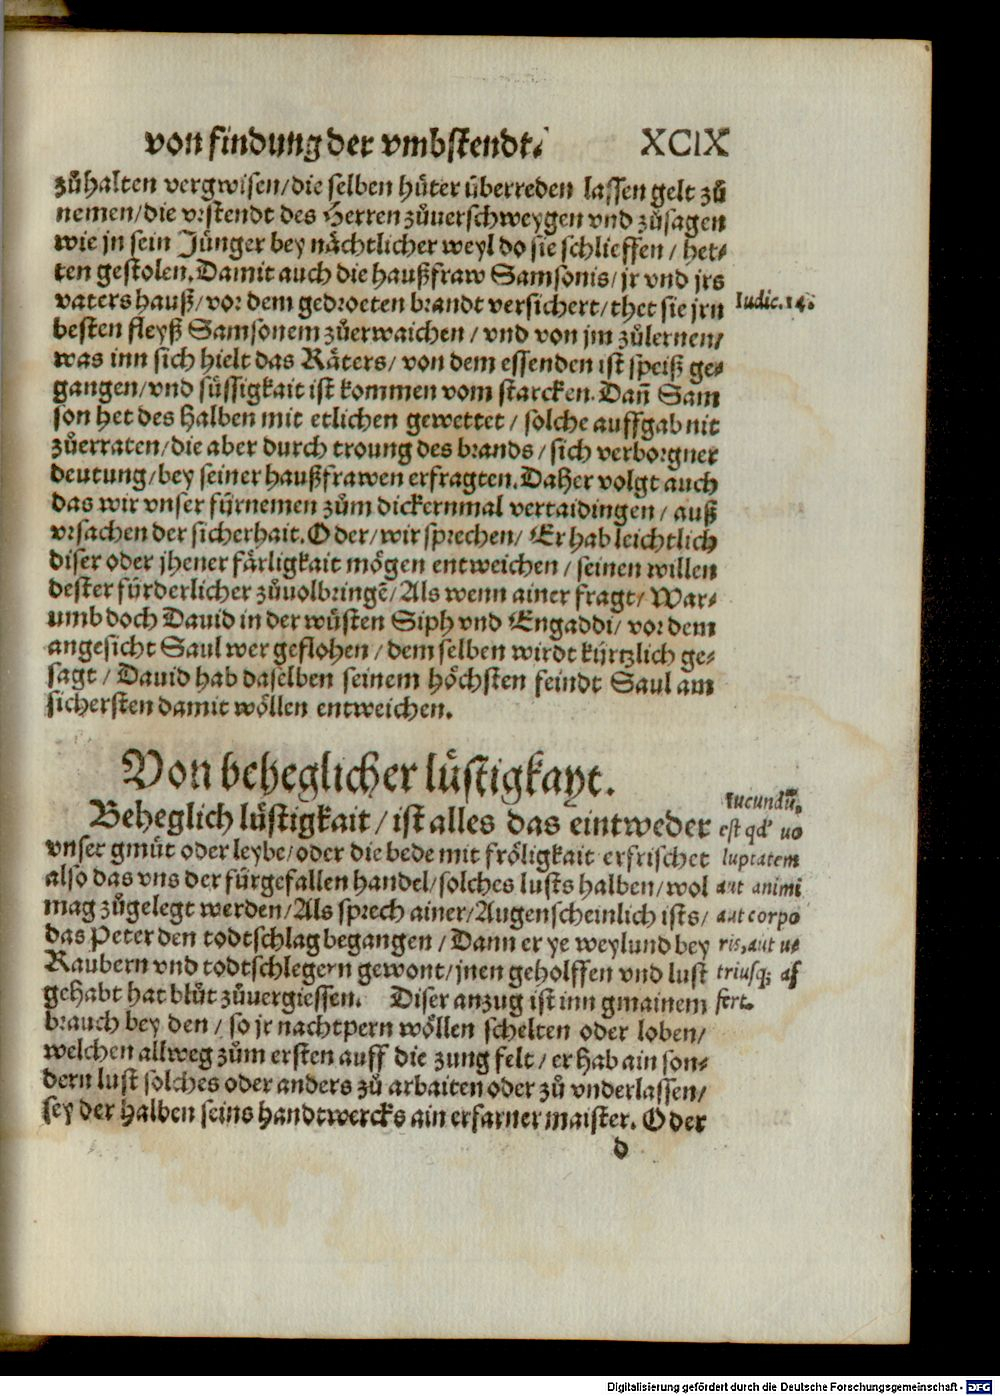 von findung der vmbstendt. XCIX
zůhalten vergwisen/die selben hüter überreden lassen gelt zů
nemen/die vrstendt des Herren zůuerschweygen vnd zůsagen
wie jn sein Jünger bey nächtlicher weyl do sie schlieffen / het-
ten gestolen. Damit auch die haußfraw Samsonis/ jr vnd jrs
vaters hauß/ vor dem gedroeten brandt versichert/ thet sie jrn
Iudic. 14.
besten fleyß Samsonem zůerwaichen / vnd von jm zůlernen/
was inn sich hielt das Räters/ von dem essenden ist speiß ge-
gangen/vnd süssigkait ist kommen vom starcken. Dañ Sam
son het des halben mit etlichen gewettet / solche auffgab nit
zůerraten/die aber durch troung des brands / sich verborgner
deutung/bey seiner haußfrawen erfragten. Daher volgt auch
das wir vnser fürnemen zům dickernmal vertaidingen / auß
vrsachen der sicherhait. Oder/ wir sprechen/ Er hab leichtlich
diser oder jhener färligkait mögen entweichen / seinen willen
dester fürderlicher zůuolbringē/ Als wenn ainer fragt/ War-
umb doch Dauid in der wüsten Siph vnd Engaddi/ vor dem
angesicht Saul wer geflohen / dem selben wirdt kürtzlich ge-
sagt / Dauid hab daselben seinem höchsten feindt Saul am
sichersten damit wöllen entweichen.
Von beheglicher lüstigkayt.
Beheglich lüstigkait / ist alles das eintweder
vnser gmüt oder leybe/oder die bede mit fröligkait erfrischet
also das vns der fürgefallen handel/solches lusts halben/ wol
mag zůgelegt werden/Als sprech ainer/Augenscheinlich ists/
das Peter den todtschlag begangen / Dann er ye weylund bey
Raubern vnd todtschlegern gewont/jnen geholffen vnd lust
gehabt hat blůt zůuergiessen. Diser anzug ist inn gmainem
brauch bey den / so jr nachtpern wöllen schelten oder loben/
welchen allweg zům ersten auff die zung felt / er hab ain son-
dern lust solches oder anders zů arbaiten oder zů vnderlassen/
sey der halben seins handtwercks ain erfarner maister. Oder
Iucundū,
est qđ uo
luptatem
aut animi
aut corpo
ris, aut u-
triusq; af
fert.
d
Digitalisierung gefördert durch die Deutsche Forschungsgemeinschaft - DFG